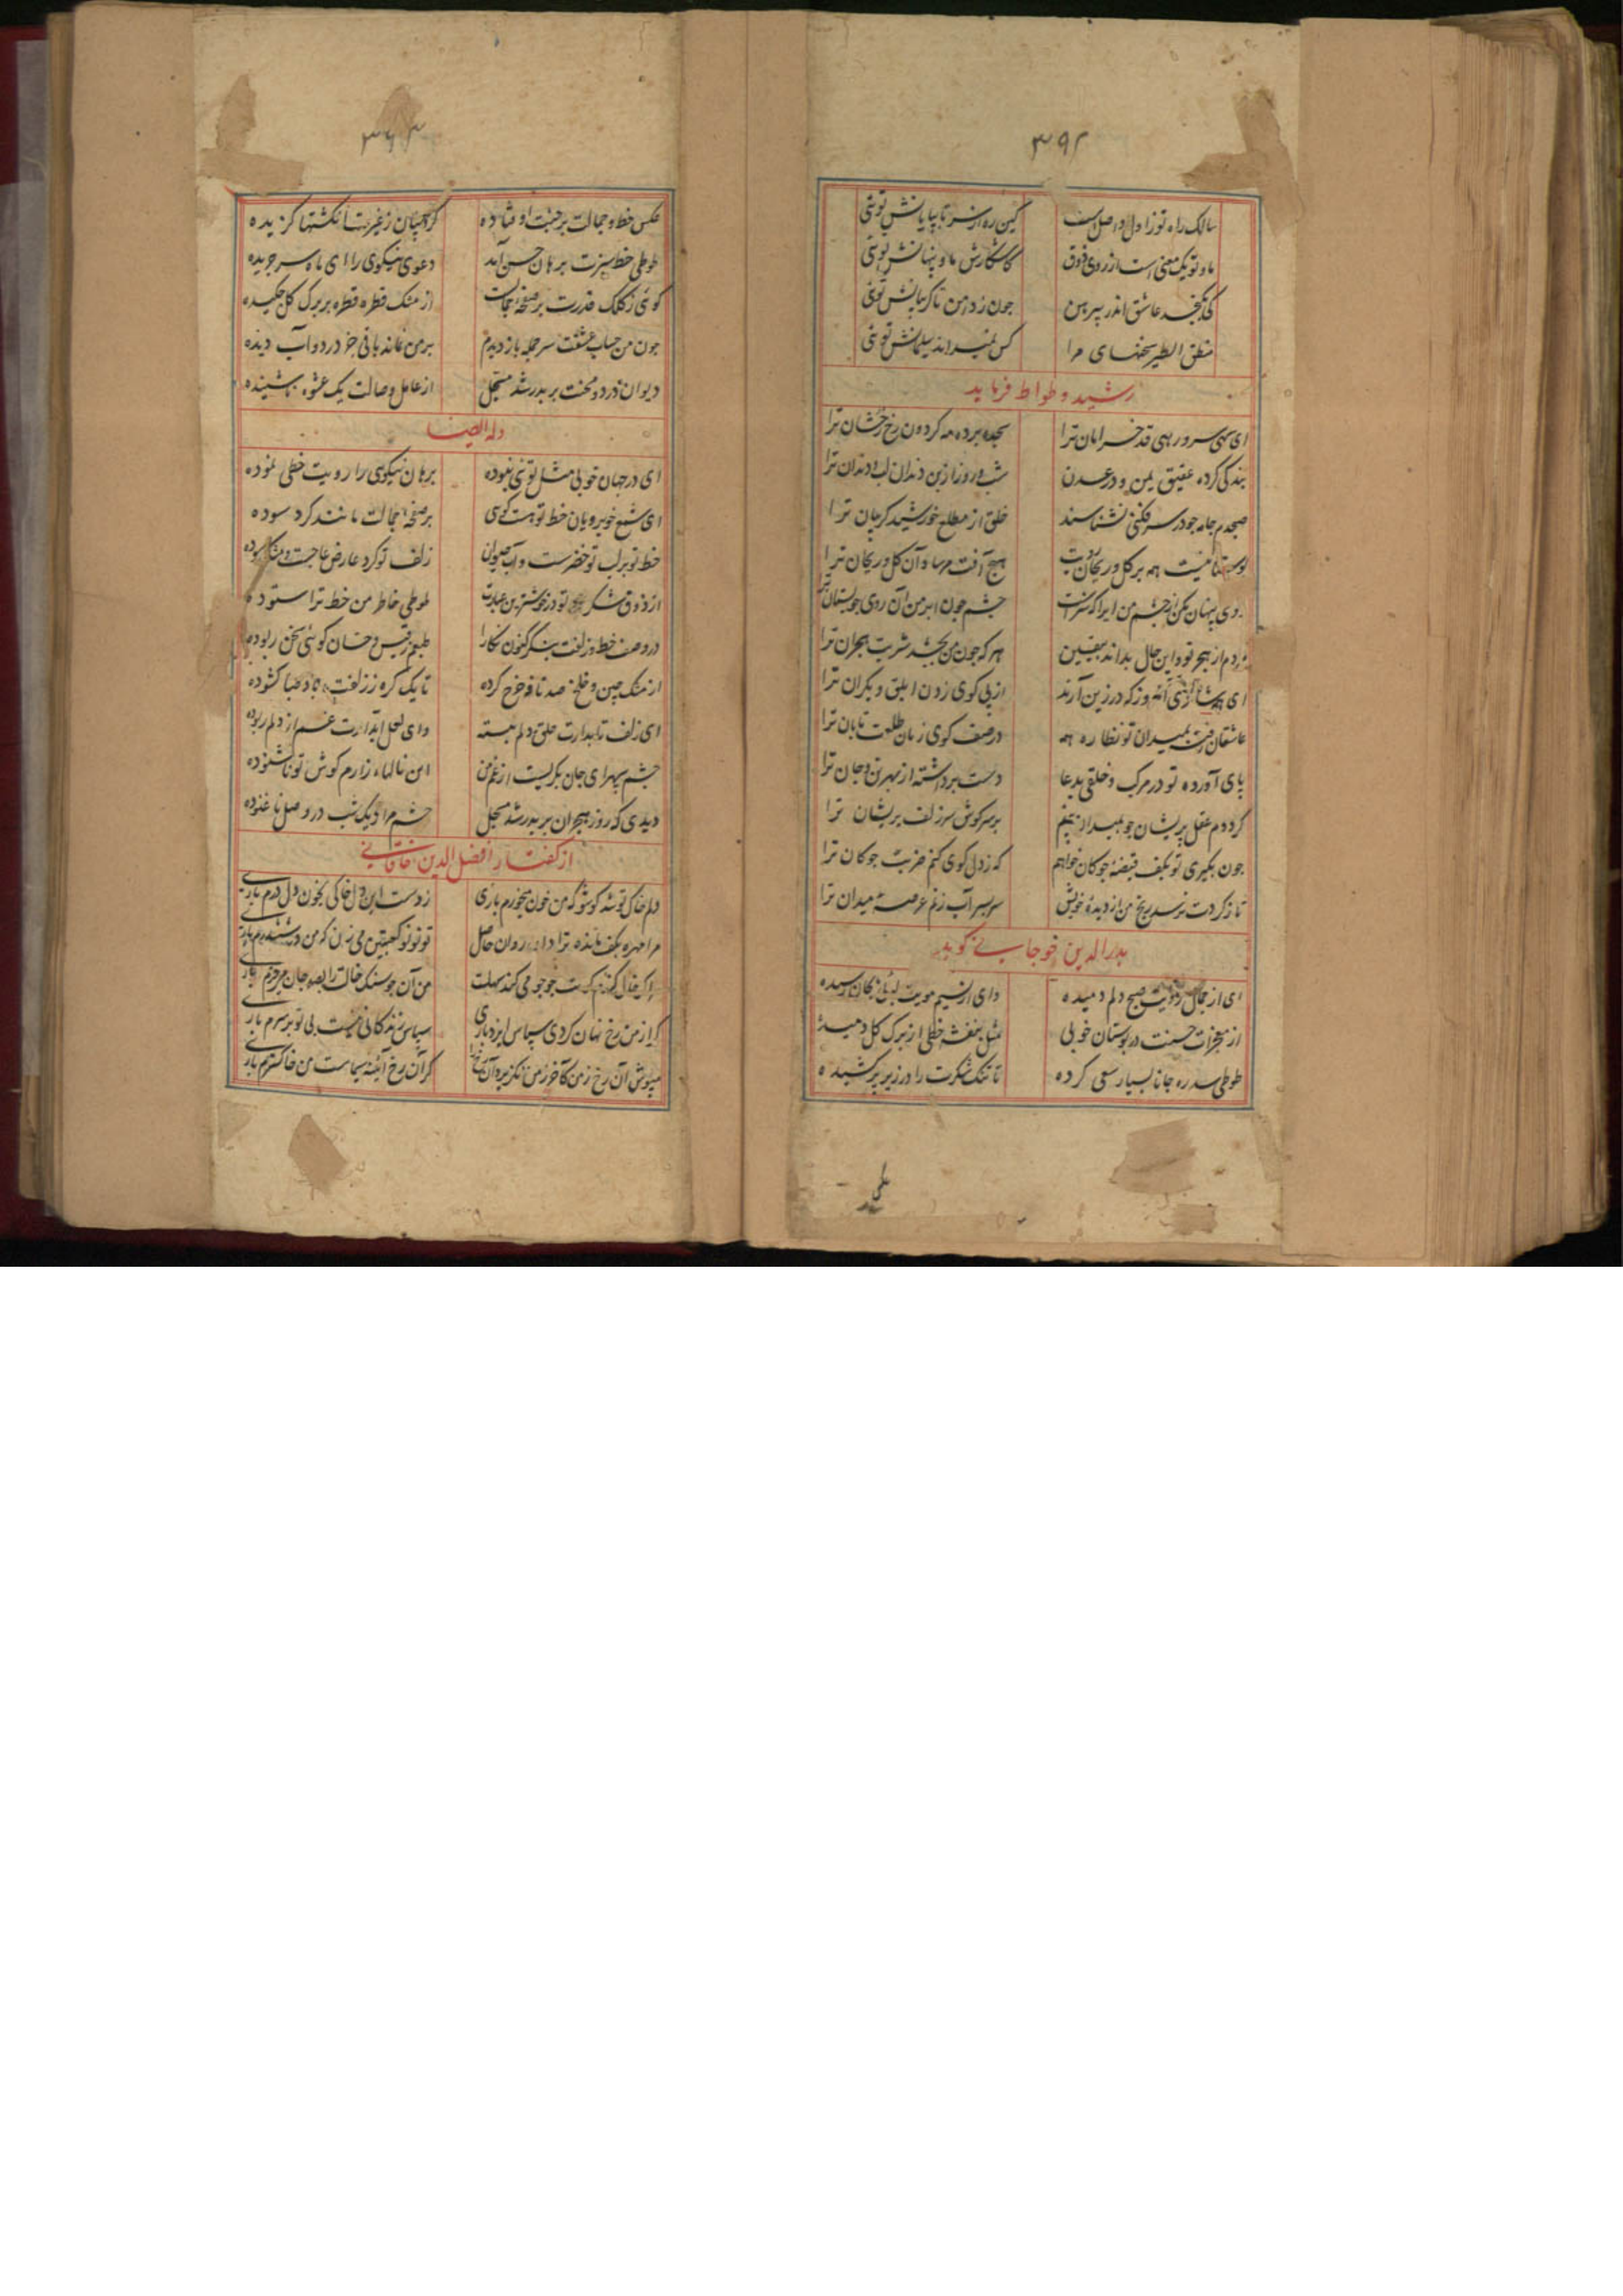 ۳۹۲
سالک راه تو ز اول واصل است کین ره از سر تا بپایانش توئی
ما و تو یک معنی است از روی ذوق کاشکارش ما و پنهانش توئی
کی بگنجد عاشق اندر پیرهن جون ز دامن تا کریبانش توئی
منطق الطیر سخنهای مرا کس نمیداند سلیمانش توئی
رشید وطواط فرماید
ای سهی سرو رهی قد خرامان ترا سجده برده مه کردون رخ رخشان ترا
بندکی کرده عقیق یمن و در عدن شب و روز از بن دندان لب و دندان ترا
صبحدم جامه جو در سر فکنی نشناسند خلق از مطلع خورشید کریبان ترا
همه بر کل و ریحان هیچ آفت مرساد آن کل و ریحان ترا
روی پنهان مکن از چشم من ایرا که سزاست چشم جون ابر من آن روی جو بستان ترا
مردم از هجر تو و این حال بداند بیقین هر که جون من بچشد شربت هجران ترا
ای روز که در زین آرند از پی کوی زدن ابلق و یکران ترا
عاشقان رفته بمیدان تو نظاره همه در صف کوی زنان طلعت تابان ترا
پای آورده تو در مرکب و خلقی بدعا دست برداشته از بهر تن و جان ترا
کرددم عقل پریشان جو بمیدان بینم بر سر کوش سر زلف پریشان ترا
جون بگیری تو بکف قبضه جوکان خواهم که ز دل کوی کنم ضربت جوکان ترا
تا ز کردت نرسد رنج من از دیده خویش سر بسر آب زنم عرصه میدان ترا
بدرالدین خوجاجانی کوید
ای از جمال رویت صبح دلم دمیده وای از نسیم مویت رسیده
از معجزات حسنت در بوستان خوبی مثل بنفشه خطی از برک کل دمیده
طوطی سدره جانا بسیار سعی کرده تا تنک شکرت را در زیر پر کشیده
۳۶۳
عکس خط و جمالت بر جنت اوفتاده کروبیان ز غیرت انکشتها کزیده
طوطی خط سبزت برهان حسن آمد دعوی نیکوی را ای ماه سر جریده
کوئی ز کلک قدرت بر صفحه جمالت از مشک قطره قطره بر برک کل چکیده
جون من حساب عشقت سر جمله باز دیدم بر من نماند باقی جز درد و آب دیده
دیوان درد و محنت بر بدر شد مسجل از عامل وصالت یک عشوه ناشنیده
وله ایضا
ای در جهان خوبی مثل تو نی نبوده برهان نیکوی را رویت خطی نموده
ای شمع خوبرویان خط تو هست کوئی بر صفحه جمالت مانند کرد سوده
خط تو بر لب تو خضرست و آب حیوان زلف تو کرد عارض
از ذوق شکر تو در خوشترین عبارت طوطی خاطر من خط ترا ستوده
در وصف خط و زلفت بنکر کنون نکارا طبعم ز قیس و حسان کوئی سخن ربوده
از مشک چین و خلخ صد نافه خرج کرده تا یک کره ز زلفت باد صبا کشوده
ای زلف تابدارت حلق دلم ببسته وای لعل آبدارت غم از دلم ربوده
چشم سپهر ای جان بکریست از غم من این نالهاء زارم کوش تو ناشنوده
دیدی که روز هجران بر بدر شد مسجل چشم مرا و یک شب در وصل ناغنوده
از کفتار افضل الدین خاقانی
دلم خاک تو شد کو شو که من خون میخورم باری ز دست این دل خاکی بخون دل درم باری
مرا مهره بکف مانده ترا داو روان حاصل تو نو نو کعبتین می زن که من در ششدرم باری
جوجو می کند مهلت من آن جوسنک خالت را بصد جان میخرم باری
کر از من رخ نهان کردی سپاس ایزد باری سپاس زندکانی نیست بی تو بر سرم باری
مپوش آن رخ ز من کآخر ز من نکزیرد آن رخ را کر آن رخ آینه سیماست من خاکسترم باری